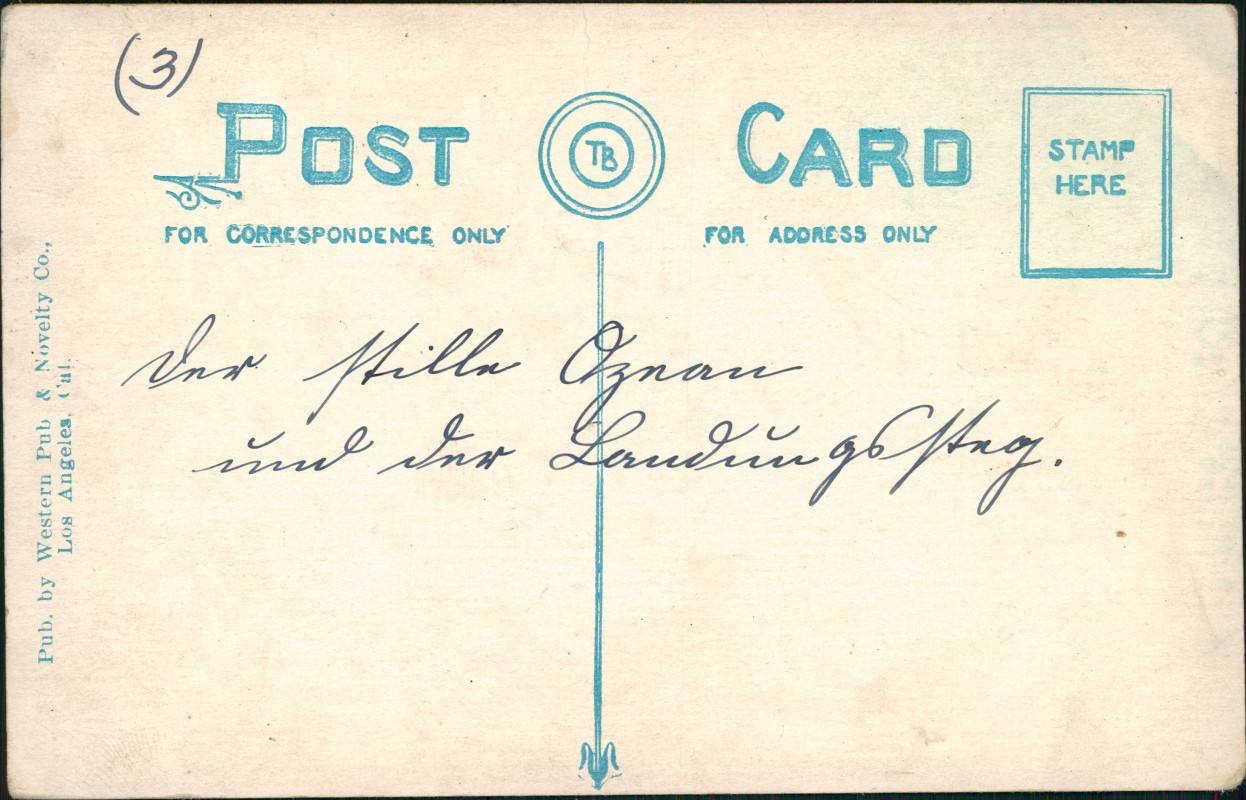 (3)
POST CARD
TB
STAMP
HERE
FOR CORRESPONDENCE ONLY
FOR ADDRESS ONLY
Pub. by Western Pub & Novelty Co.,
Los Angeles, Cal.
Der stille Ozean
und der Landungssteg.